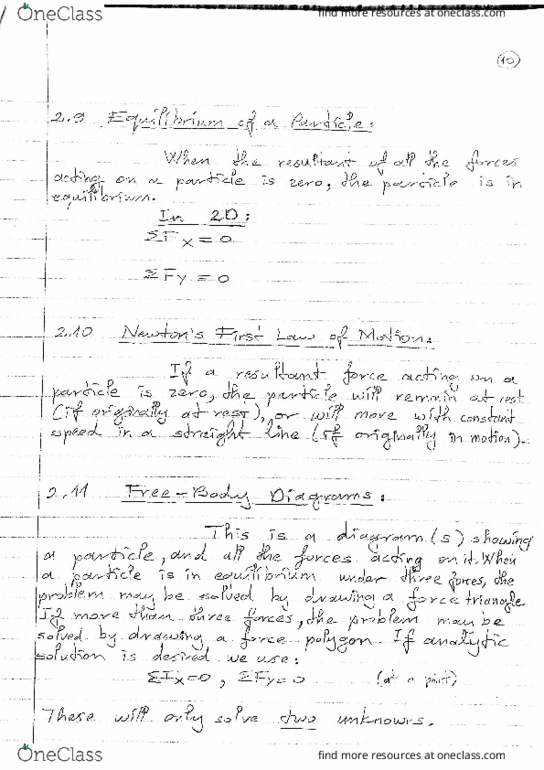 OneClass
find more resources at oneclass.com
10
2.9 Equilibrium of a Particle:
When the resultant of all the forces
acting on a particle is zero, the particle is in
equilibrium.
In 2D:
ΣFx=0
ΣFy=0
2.10 Newton's First Law of Motion.
If a resultant force acting on a
particle is zero, the particle will remain at rest
(if originally at rest), or will move with constant
speed in a straight line (if originally in motion).
2.11 Free-Body Diagrams:
This is a diagram(s) showing
a particle, and all the forces acting on it. When
a particle is in equilibrium under three forces, the
problem may be solved by drawing a force triangle.
If more than three forces, the problem may be
solved by drawing a force polygon. If analytic
solution is desired we use:
ΣFx=0, ΣFy=0 (at a point)
These will only solve two unknowns.
OneClass
find more resources at oneclass.com